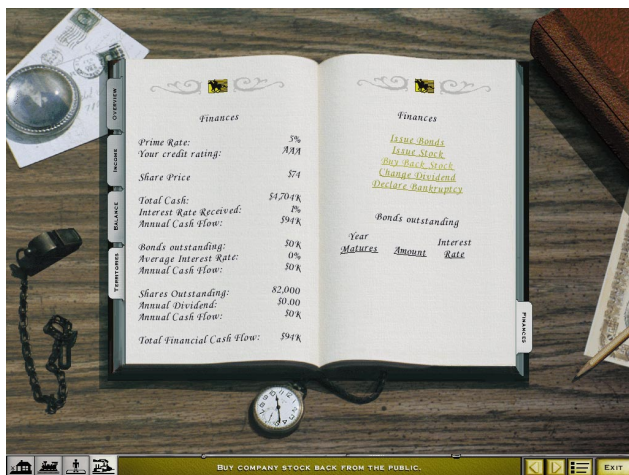 OVERVIEW
INCOME
BALANCE
TERRITORIES
Finances
Prime Rate: 5%
Your credit rating: AAA
Share Price $74
Total Cash: $4,704K
Interest Rate Received: 1%
Annual Cash Flow: $94K
Bonds outstanding: $0K
Average Interest Rate: 0%
Annual Cash Flow: $0K
Shares Outstanding: 82,000
Annual Dividend: $0.00
Annual Cash Flow: $0K
Total Financial Cash Flow: $94K
Finances
Issue Bonds
Issue Stock
Buy Back Stock
Change Dividend
Declare Bankruptcy
Bonds outstanding
Year Interest
Matures Amount Rate
FINANCES
BUY COMPANY STOCK BACK FROM THE PUBLIC.
EXIT